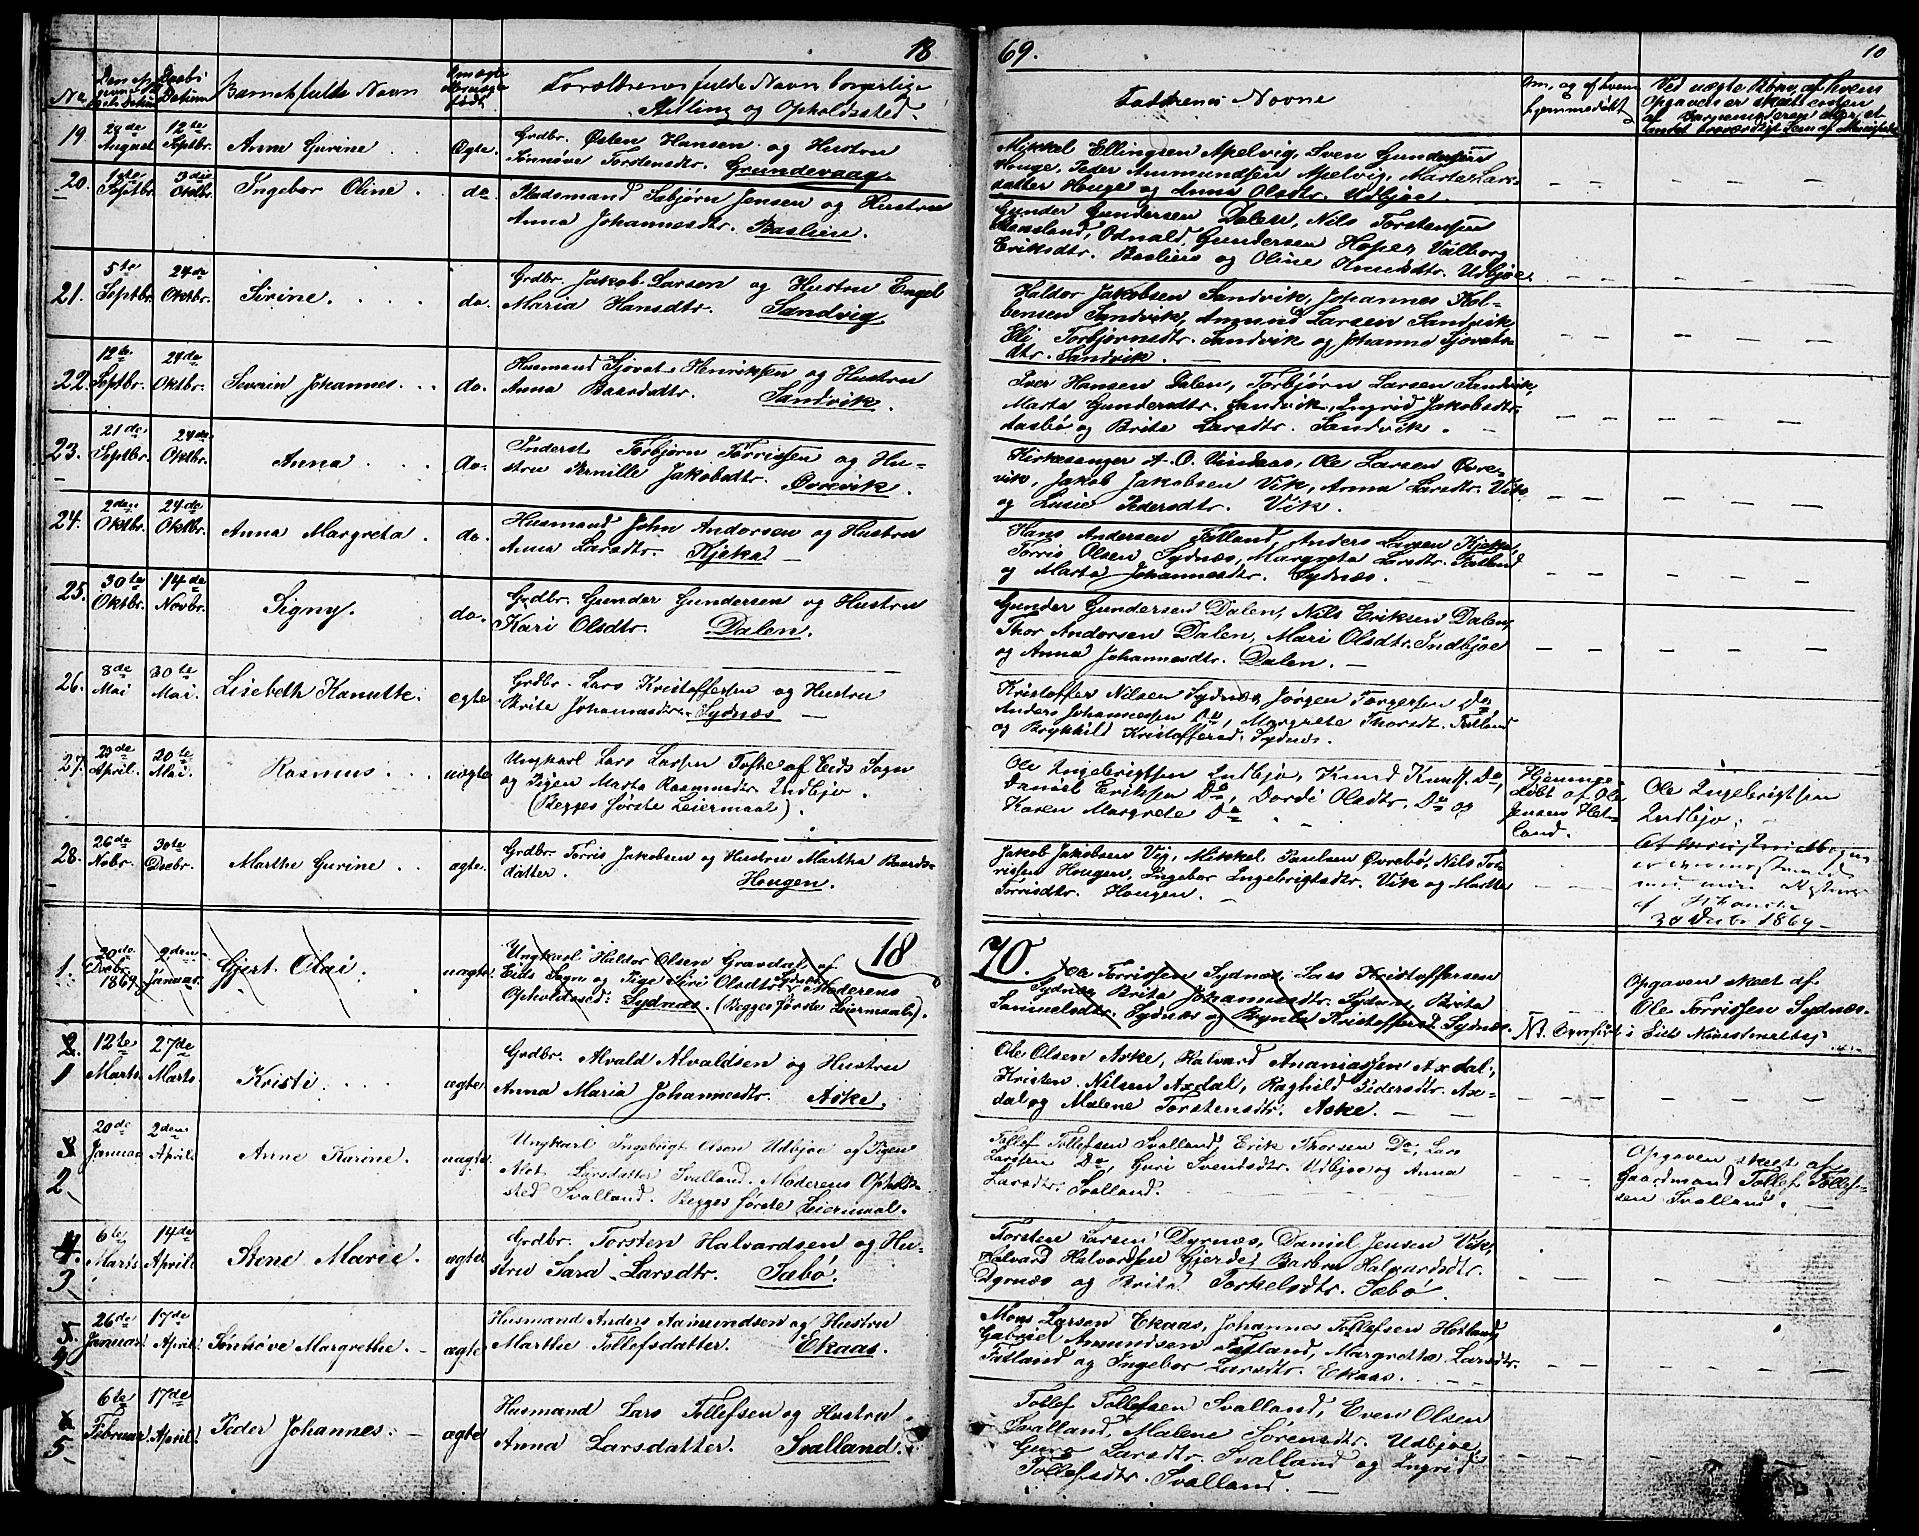 18
69.
10
No.
Barnets fulde Navn
Forældrenes fulde Navn borgerlige
Stilling og Opholdssted
Faddernes Navne
Om, og af hvem
hjemmedøbt
19. 20de August 12te Septbr. Anna Gurine. Ægte. Grdbr. Østen Hansen og Hustru
Sønnøve Torstensdtr. Grundevaag.
Mikkal Ellingsen Apelvig, Sven Gundersen
Houge, Peder Ammundsen Apelvig, Marta Lars-
datter Houge og Anna Olsdtr. Udbjoe.
20. Septbr. 3die Oktbr. Ingebor Oline. do. Pladsmand Asbjørn Jensen og Hustru
Anna Johannesdtr. Basliere.
Gunder Gundersen Dalen, Nils Torstensen
Odnald Gundersen Hope, Valborg
Eriksdtr. Basliere og Oline Knudsdtr. Udbjoe.
21. 5te Septbr. 24de Oktbr. Sirine. do. Grdbr. Jakob Larsen og Hustru Engel
Maria Hansdtr. Sandvig
Haldor Jakobsen Sandvik, Johannes Kol-
bensen Sandvik, Amund Larsen Sandvik
Eli Torbjørnsdtr. Sandvik og Johanna Sjovats-
dtr. Sandvik.
22. 12te Septbr. 24de Oktbr. Severin Johannes. do. Husmand Sjovat Henriksen og Hustru
Anna Baardsdtr. Sandvik.
Iver Hansen Dalen, Torbjørn Larsen Sandvik,
Marta Gundersdtr. Sandvik, Ingrid Jakobsdtr.
Aasbø og Brita Larsdtr. Sandvik.
23. 21de Septbr. 24de Oktbr. Anna. do. Inderst Torbjørn Torrissen og Hu-
stru Pernille Jakobsdtr. Øvrevik.
Kirkesanger A. O. Vindaas, Ole Larsen Øvre-
vik, Jakob Jakobsen Vik, Anna Larsdtr. Vik
og Lusie Pedersdtr. Vik.
24. 2den Oktbr. 24de Oktbr. Anna Margreta. do. Husmand John Andersen og Hustru
Anna Larsdtr. Kjeka
Hans Andersen Fatland, Anders Larsen Kjeka,
Torris Olsen Sydnæs, Margreta Larsdtr. Fatland
og Marta Johannesdtr. Sydnæs.
25. 30te Oktbr. 14de Novbr. Signy. do. Grdbr. Gunder Gundersen og Hustru
Kari Olsdtr. Dalen.
Gunder Gundersen Dalen, Nils Eriksen Dalen,
Thor Andersen Dalen, Mari Olsdtr. Indbjoe
og Anna Johannesdtr. Dalen.
26. 8de Mai 30te Mai. Lisebeth Kanutte. ægte. Grdbr. Lars Kristoffersen og Hustru
Brita Johannesdtr. Sydnæs
Kristoffer Nilsen Sydnæs, Jørgen Torgersen Do
Anders Johannessen Do, Margrete Thorsdt. Fatland
og Brykhild Kristoffersd. Sydnæs.
27. 23de April. 30te Mai. Rasmus. uægte Ungkarl Lars Larsen Tofte af Eids Sogn
og Pigen Marta Rasmusdtr. Indbjo.
(Begges første Leiermaal).
Ole Ingebrigtsen Indbjo, Knud Knuds. Do,
Daniel Eriksen Do, Dordi Olsdtr. Do og
Karen Margrete Do
Hjemme-
døbt af Ole
Jensen Het-
land.
Ole Ingebrigtsen
Indbjo.
28. 26de Nobr. 30te Decbr. Marthe Gurine. ægte. Grdbr. Torris Jakobsen og Hustru Martha Baards-
datter. Hougen.
Jakob Jakobsen Vig, Mikkel Paulsen Øvrebø, Nils Tor-
rissen Hougen, Ingebor Ingebrigtsdtr. Vik og Marthe
Torrisdtr. Hougen.
1869
18
70.
1. 20de Decbr. 1869 2den Januar. Gjert Olai. uægte. Ungkarl Haldor Olsen Gravdal af
Eids Sogn og Pige Siri Olsdtr. Sydnæs. Moderens
Opholdssted: Sydnæs. (Begges første Leiermaal).
Ole Torrissen Sydnæs, Lars Kristoffersen
Sydnæs, Brita Johannesdtr. Sydnæs, Brita
Samuelsdtr. Sydnæs og Kristoffersd. Sydnæs.
Opgaven skeet af
Ole Torrissen Sydnæs.
2. 1 12te Marts. 27de Marts. Kristi. ægte. Grdbr. Alvald Alvaldsen og Hustru
Anna Maria Johannesdtr. Aske.
Ole Olsen Aske, Halvard Ananiassen Axdal,
Kristen Nilsen Axdal, Raghild Pedersdtr. Ax-
dal og Malene Torstensdtr. Aske.
3. 2. 20de Januar 2den April. Anne Karine. uægte. Ungkarl Ingebrigt Olsen Udbjoe og Pigen
Larsdatter Svalland. Moderens Opholds-
sted Svalland. Begges første Leiermaal.
Tollef Tollefsen Svalland, Erik Thorsen Do, Lars
Larssen Do, Guri Svendsdtr. Udbjoe og Anna
Larsdtr. Svalland.
Opgaven skeet af
Gaardmand Tollef Tollef-
sen Svalland.
4. 3 6te Marts 14de April. Stene Marie. ægte Grdbr. Torsten Halvardsen og Hu-
stru Sara Larsdtr. Sæbø.
Torsten Larsen Dyrnæs, Daniel Jensen Vik,
Halvard Halvardsen Gjerde, Barbru Halvardsdtr.
Dyrnæs og Brita Torkelsdtr. Sæbø.
5. 4 26de Januar. 17de April. Sønnøve Margrethe. ægte. Husmand Anders Aamundsen og Hustru
Marthe Tollefsdatter. Ekaas.
Mons Larsen Ekaas, Johannes Tollefsen Hetland,
Gabriel Amundsen Fatland, Margretha Larsdtr.
Fatland og Ingebor Larsdtr. Ekaas.
5 6te Februar 17de April. Peder Johannes. ægte Husmand Lars Tollefsen og Hustru
Anna Larsdatter. Svalland.
Tollef Tollefsen Svalland, Even Olsen
Svalland, Malene Sørensdtr. Udbjoe,
Guro Larsdtr. Svalland og Ingrid
Tollefsdtr. Svalland.